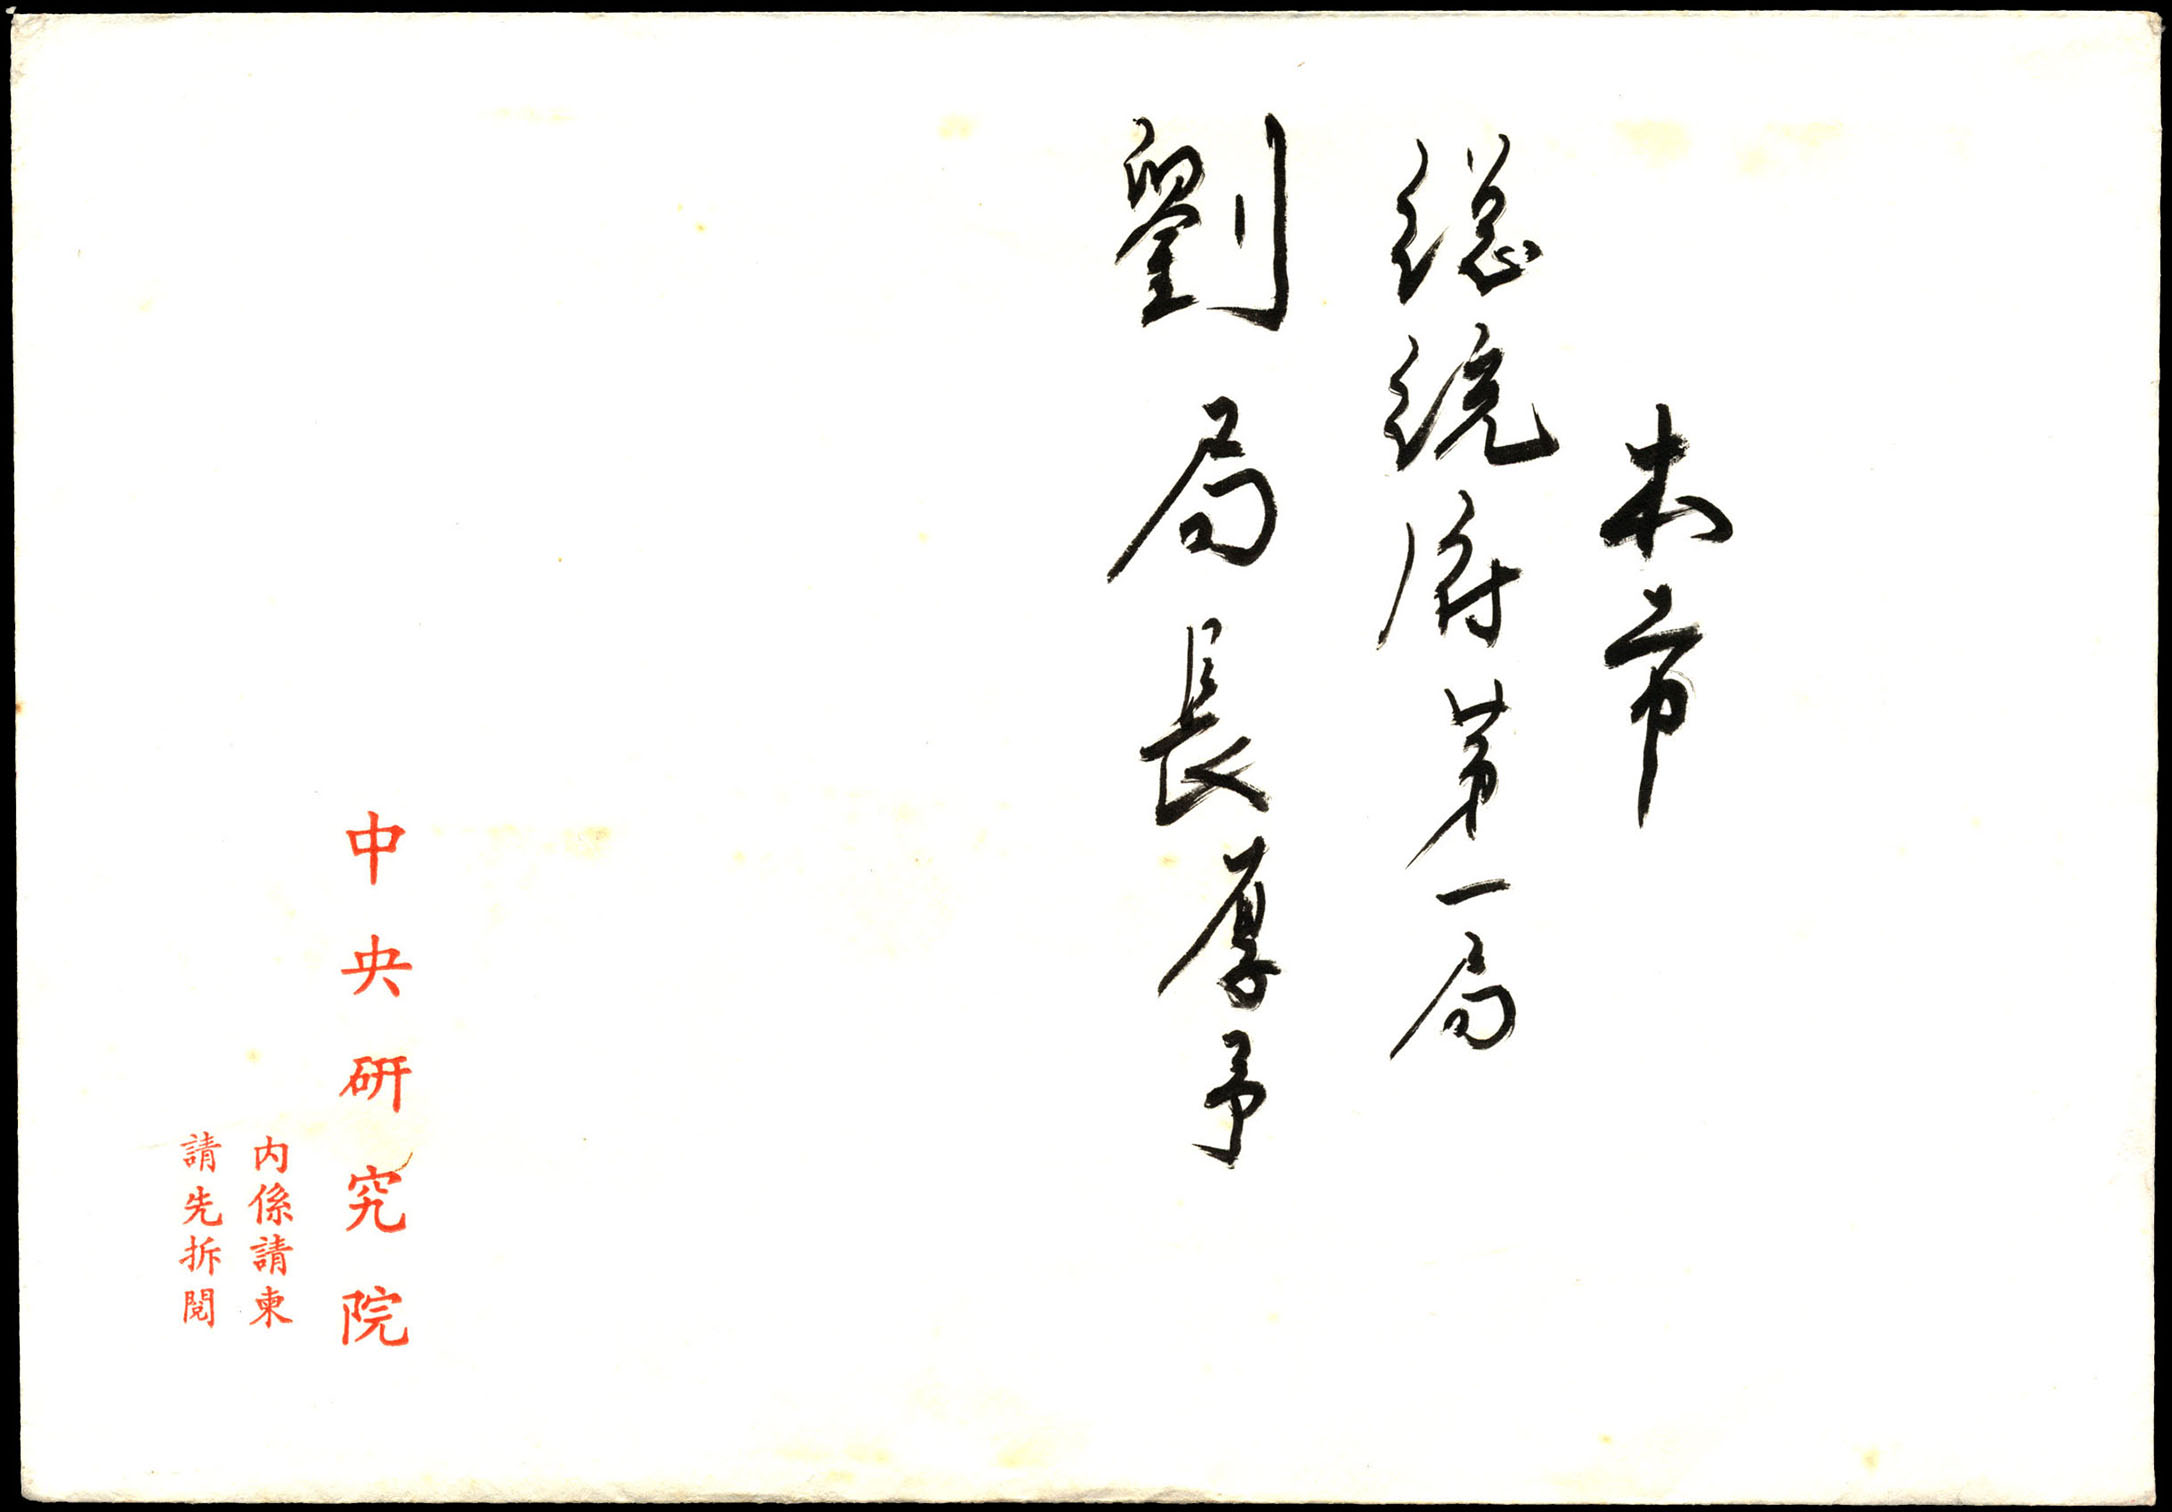 本市
總統府第一局
劉局長厚予
中央研究院
内係請柬
請先拆閱